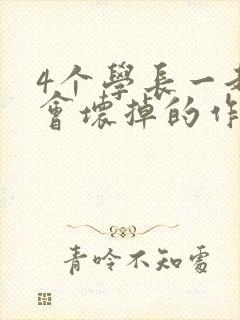 4个學長一
會壞掉的作
青吟不知處